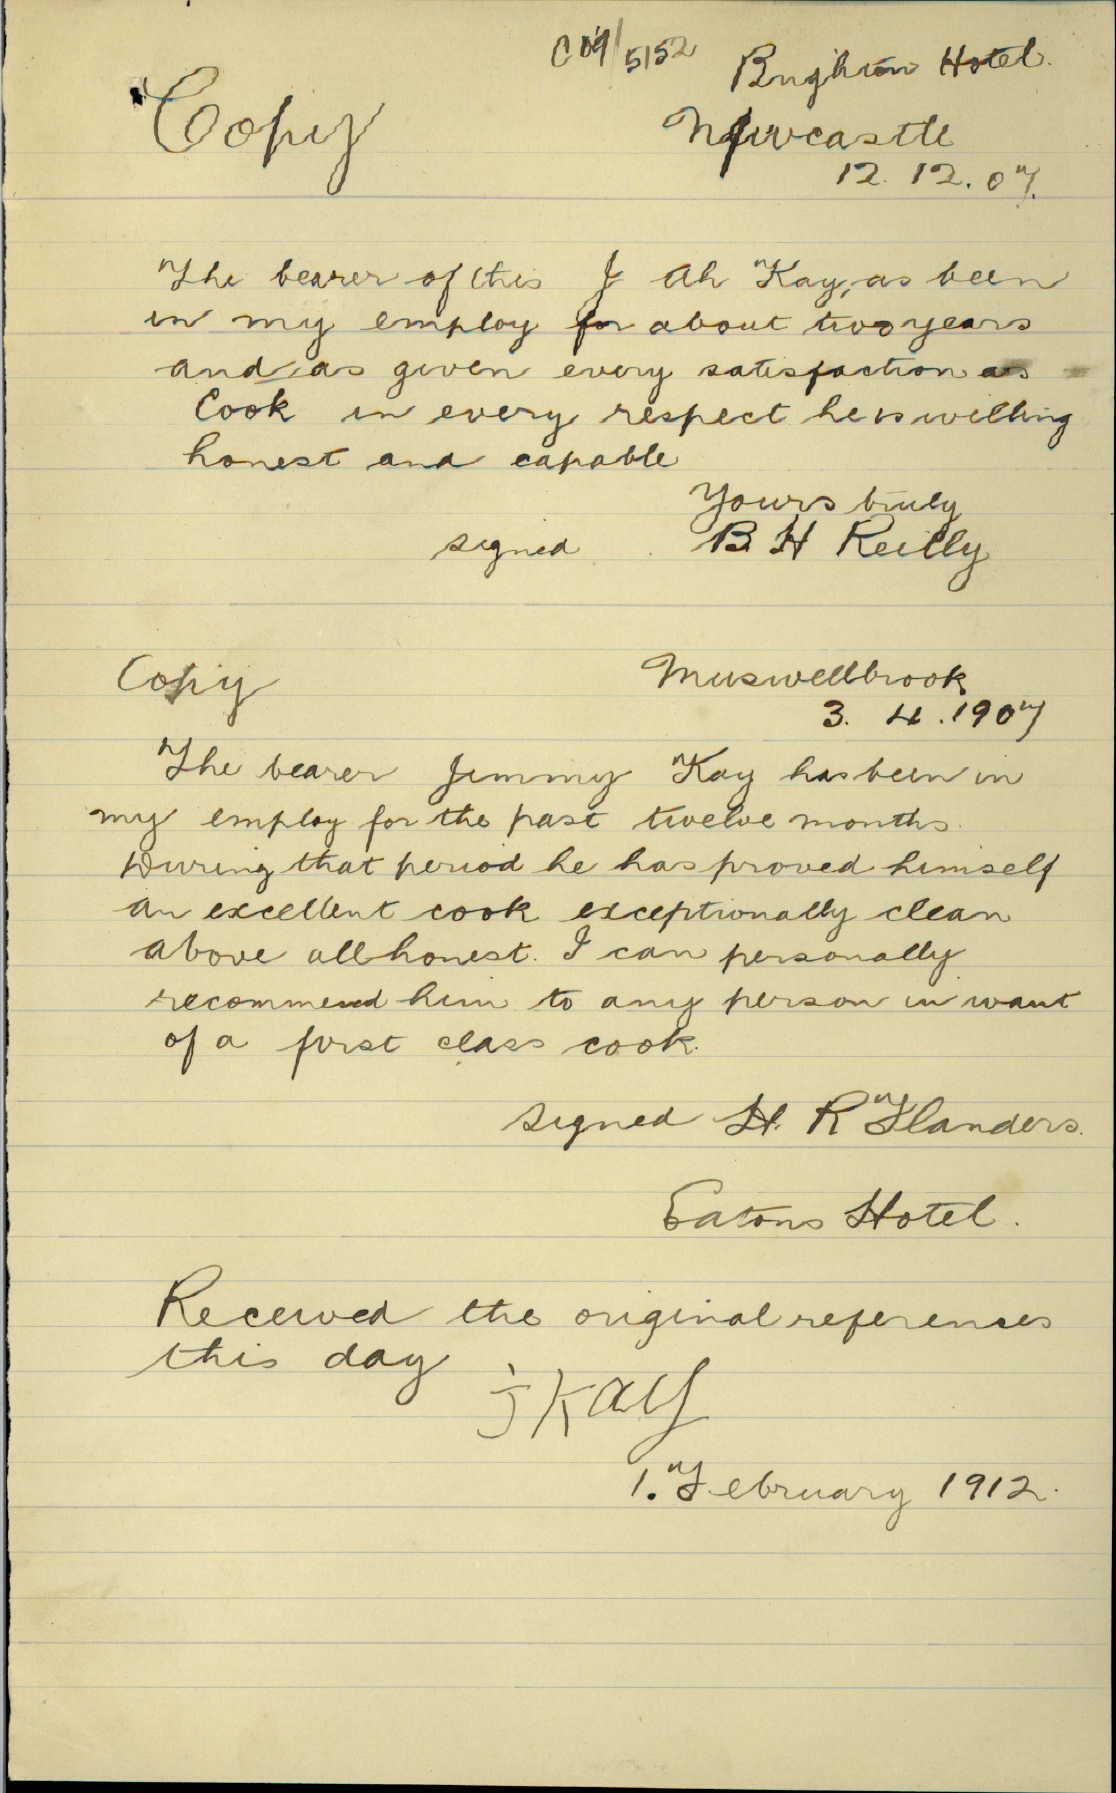 C 09/5152
Brighton Hotel.
Copy
Newcastle
12. 12. 07.
The bearer of this J Ah Kay, as been
in my employ for about two years
and as given every satisfaction as
Cook in every respect he is willing
honest and capable
Yours truly
signed B. H Reilly
Copy
Muswellbrook
3. 4. 1907
The bearer Jimmy Kay has been in
my employ for the past twelve months.
During that period he has proved himself
an excellent cook exceptionally clean
above all honest. I can personally
recommend him to any person in want
of a first class cook.
signed H. R Flanders.
Eatons Hotel.
Received the original references
this day
J KAy
1. February 1912.